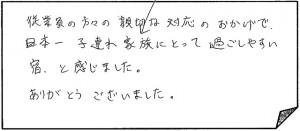 従業員の方々の親切な対応のおかげで、
日本一子連れ家族にとって過ごしやすい
宿、と感じました。
ありがとうございました。